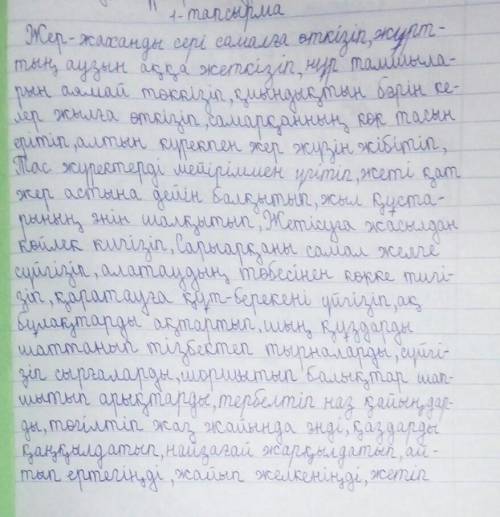 1-тапсырма
Жер-жаханды сері самалға өткізіп, жұрт-
тың аузын аққа жеткізіп, нұр тамшыла-
рын аямай төккізіп, қиындықтың бәрін ке-
лер жылға өткізіп, самарқанның көк тасын
ерітіп, алтын күрекпен жер жүзін жібітіп,
Тас жүректерді мейіріммен үгітіп, жеті қат
жер астына дейін балқытып, жыл құста-
рының әнін шалқытып, Жетісуға жасылдан
көйлек кигізіп, Сарыарқаны самал желге
сүйгізіп, алатаудың төбесінен көкке тигі-
зіп, қаратауға құт-берекені үйгізіп, ақ
бұлақтарды ақтартып, шың құздарды
шаттанып тізбектеп тырналарды, сүйгі-
зіп сырғаларды, шоршытып балықтар шап-
шытып арықтарды, тербелтіп наз қайыңдар-
ды, төгілтіп жаз жайында әнді, қаздарды
қаңқылдатып, найзағай жарқылдатып, ай-
тып ертегіңді, жайып желкеніңді, жетіп